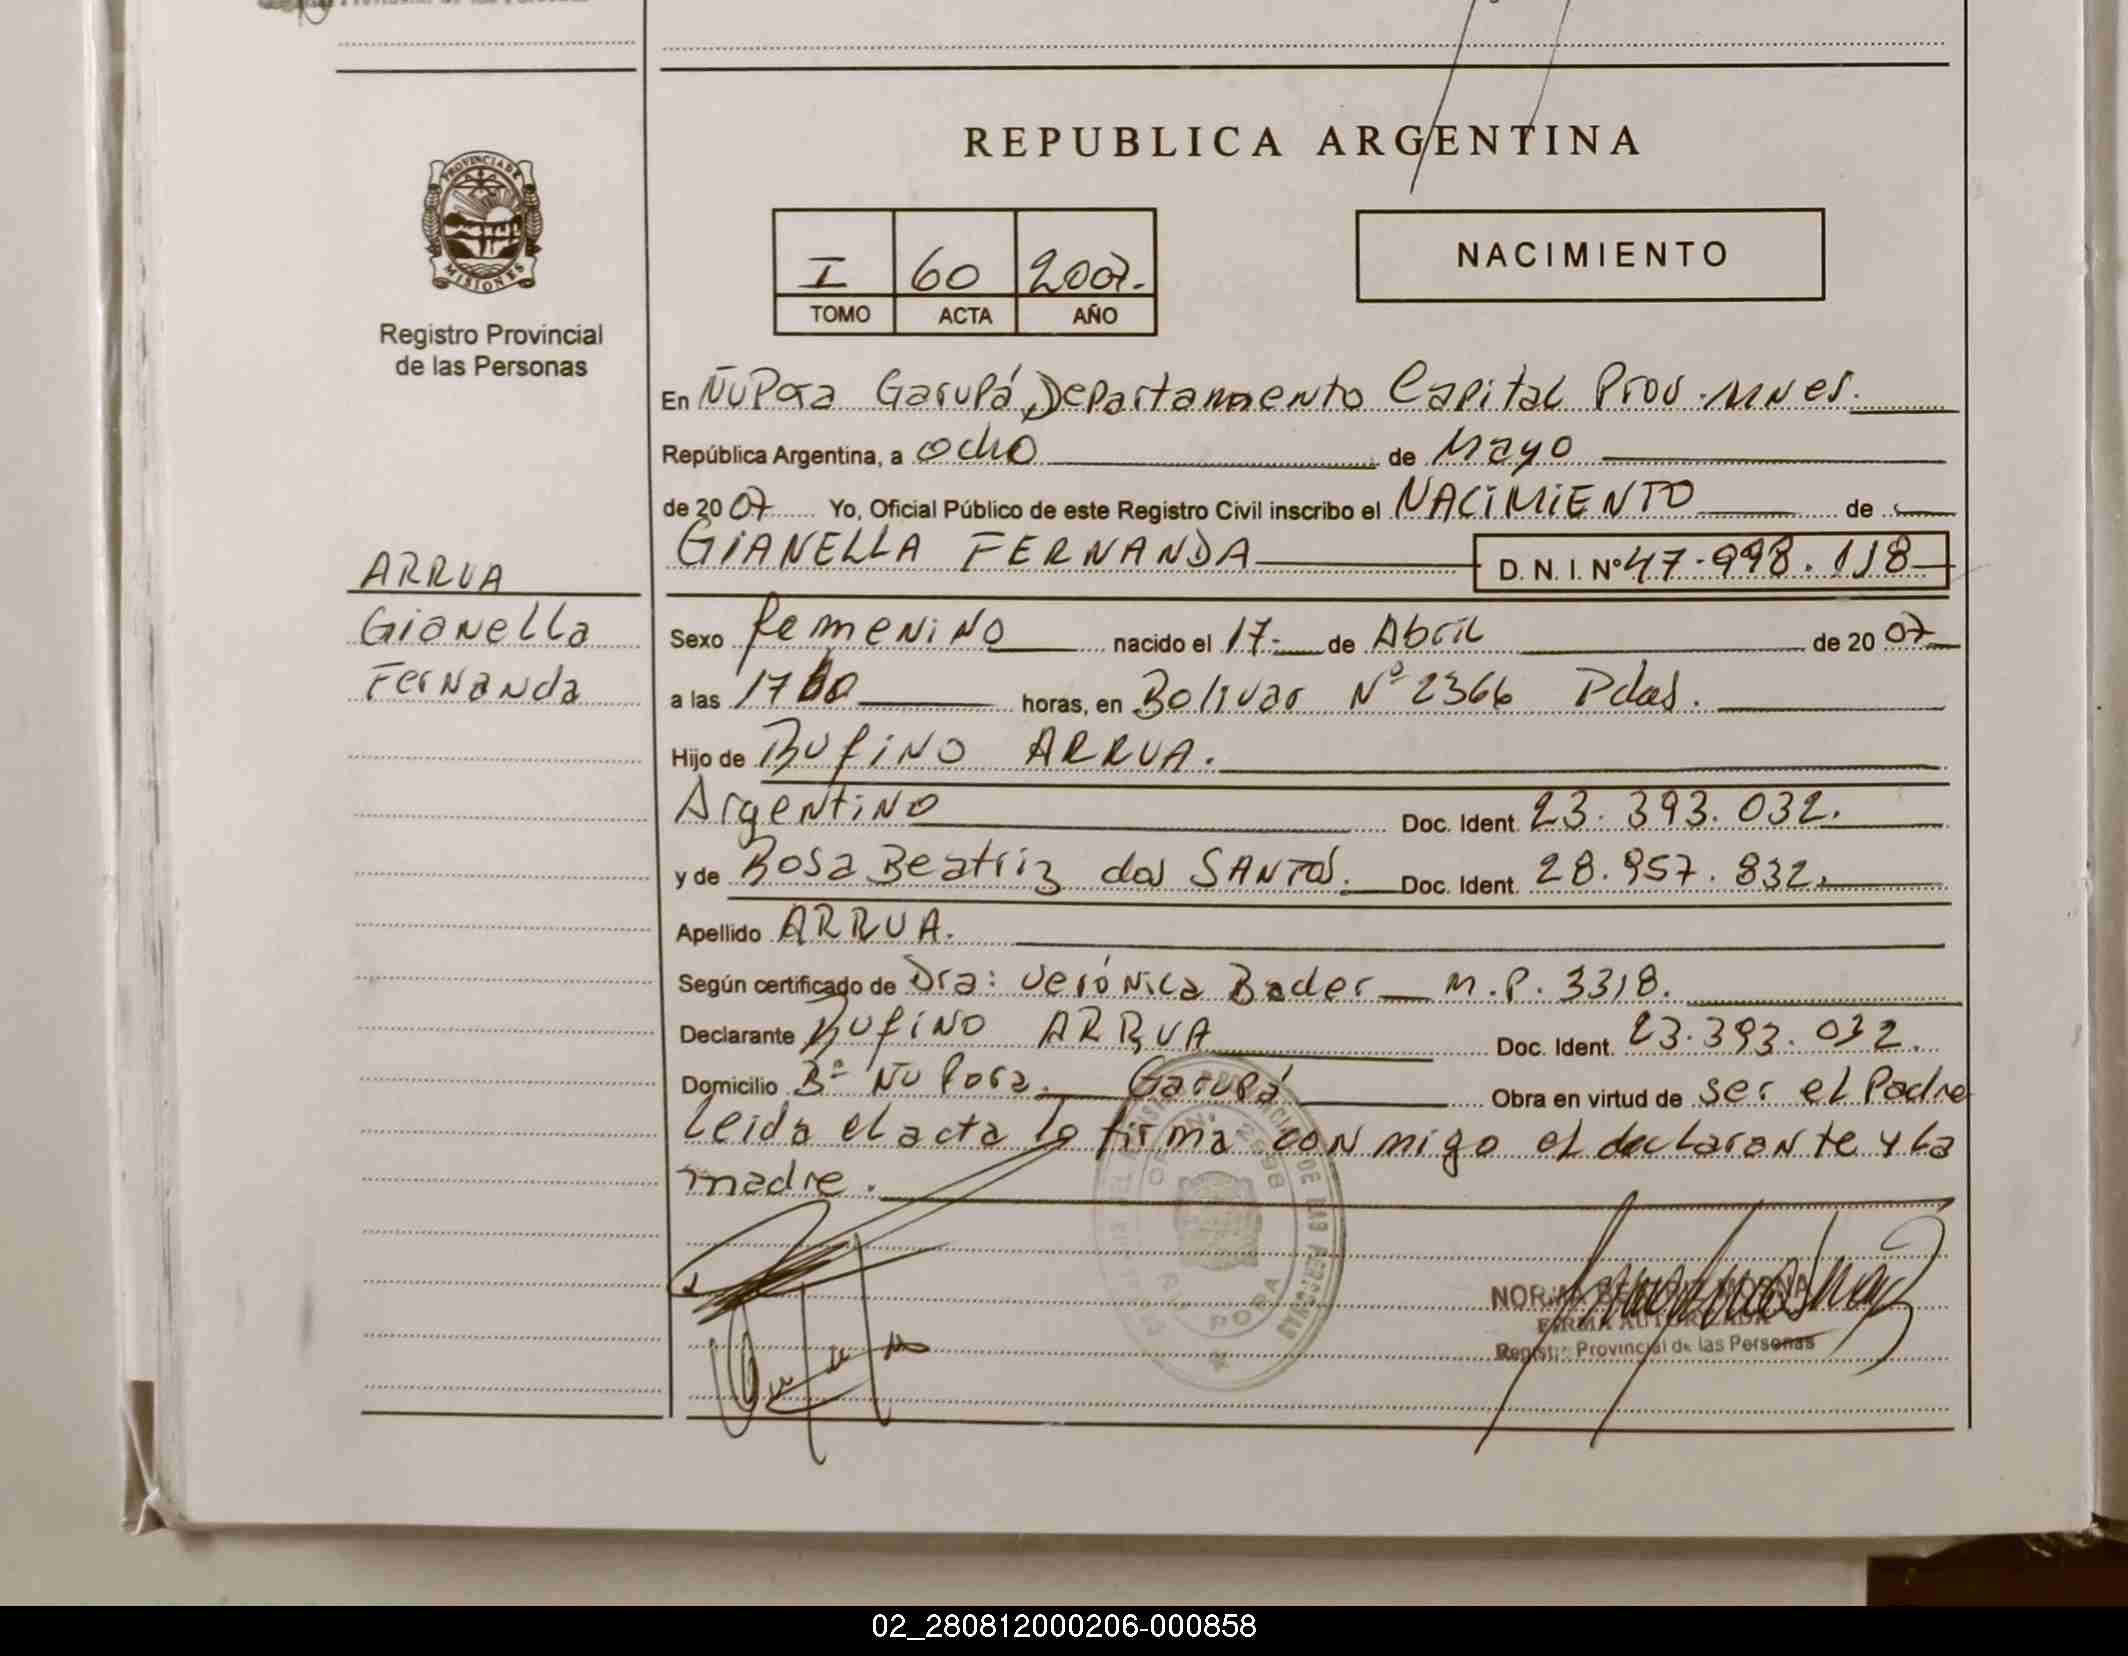 REPUBLICA ARGENTINA
PROVINCIA DE
MISIONES
Registro Provincial
de las Personas
I 60 2007.
TOMO ACTA AÑO
NACIMIENTO
En ÑuPora Garupá, Departamento Capital Prov. Mnes.
República Argentina, a ocho de Mayo
de 2007 Yo, Oficial Público de este Registro Civil inscribo el NACIMIENTO de
ARRUA
Gianella
Fernanda
GIANELLA FERNANDA D. N. I. Nº 47.998.118
Sexo femenino nacido el 17. de Abril de 2007
a las 17 horas, en Bolivar Nº 2366 Pdas.
Hijo de Rufino ARRUA.
Argentino Doc. Ident. 23.393.032.
y de Rosa Beatriz dos SANTOS. Doc. Ident. 28.957.832.
Apellido ARRUA.
Según certificado de Dra: Verónica Bader M.P. 3318.
Declarante Rufino ARRUA Doc. Ident. 23.393.032.
Domicilio Bº Ñu Pora. Garupá Obra en virtud de ser el Padre
Leida el acta la firma conmigo el declarante y la
madre.
NORMA
FIRMA AUTORIZADA
Registro Provincial de las Personas
02_280812000206-000858